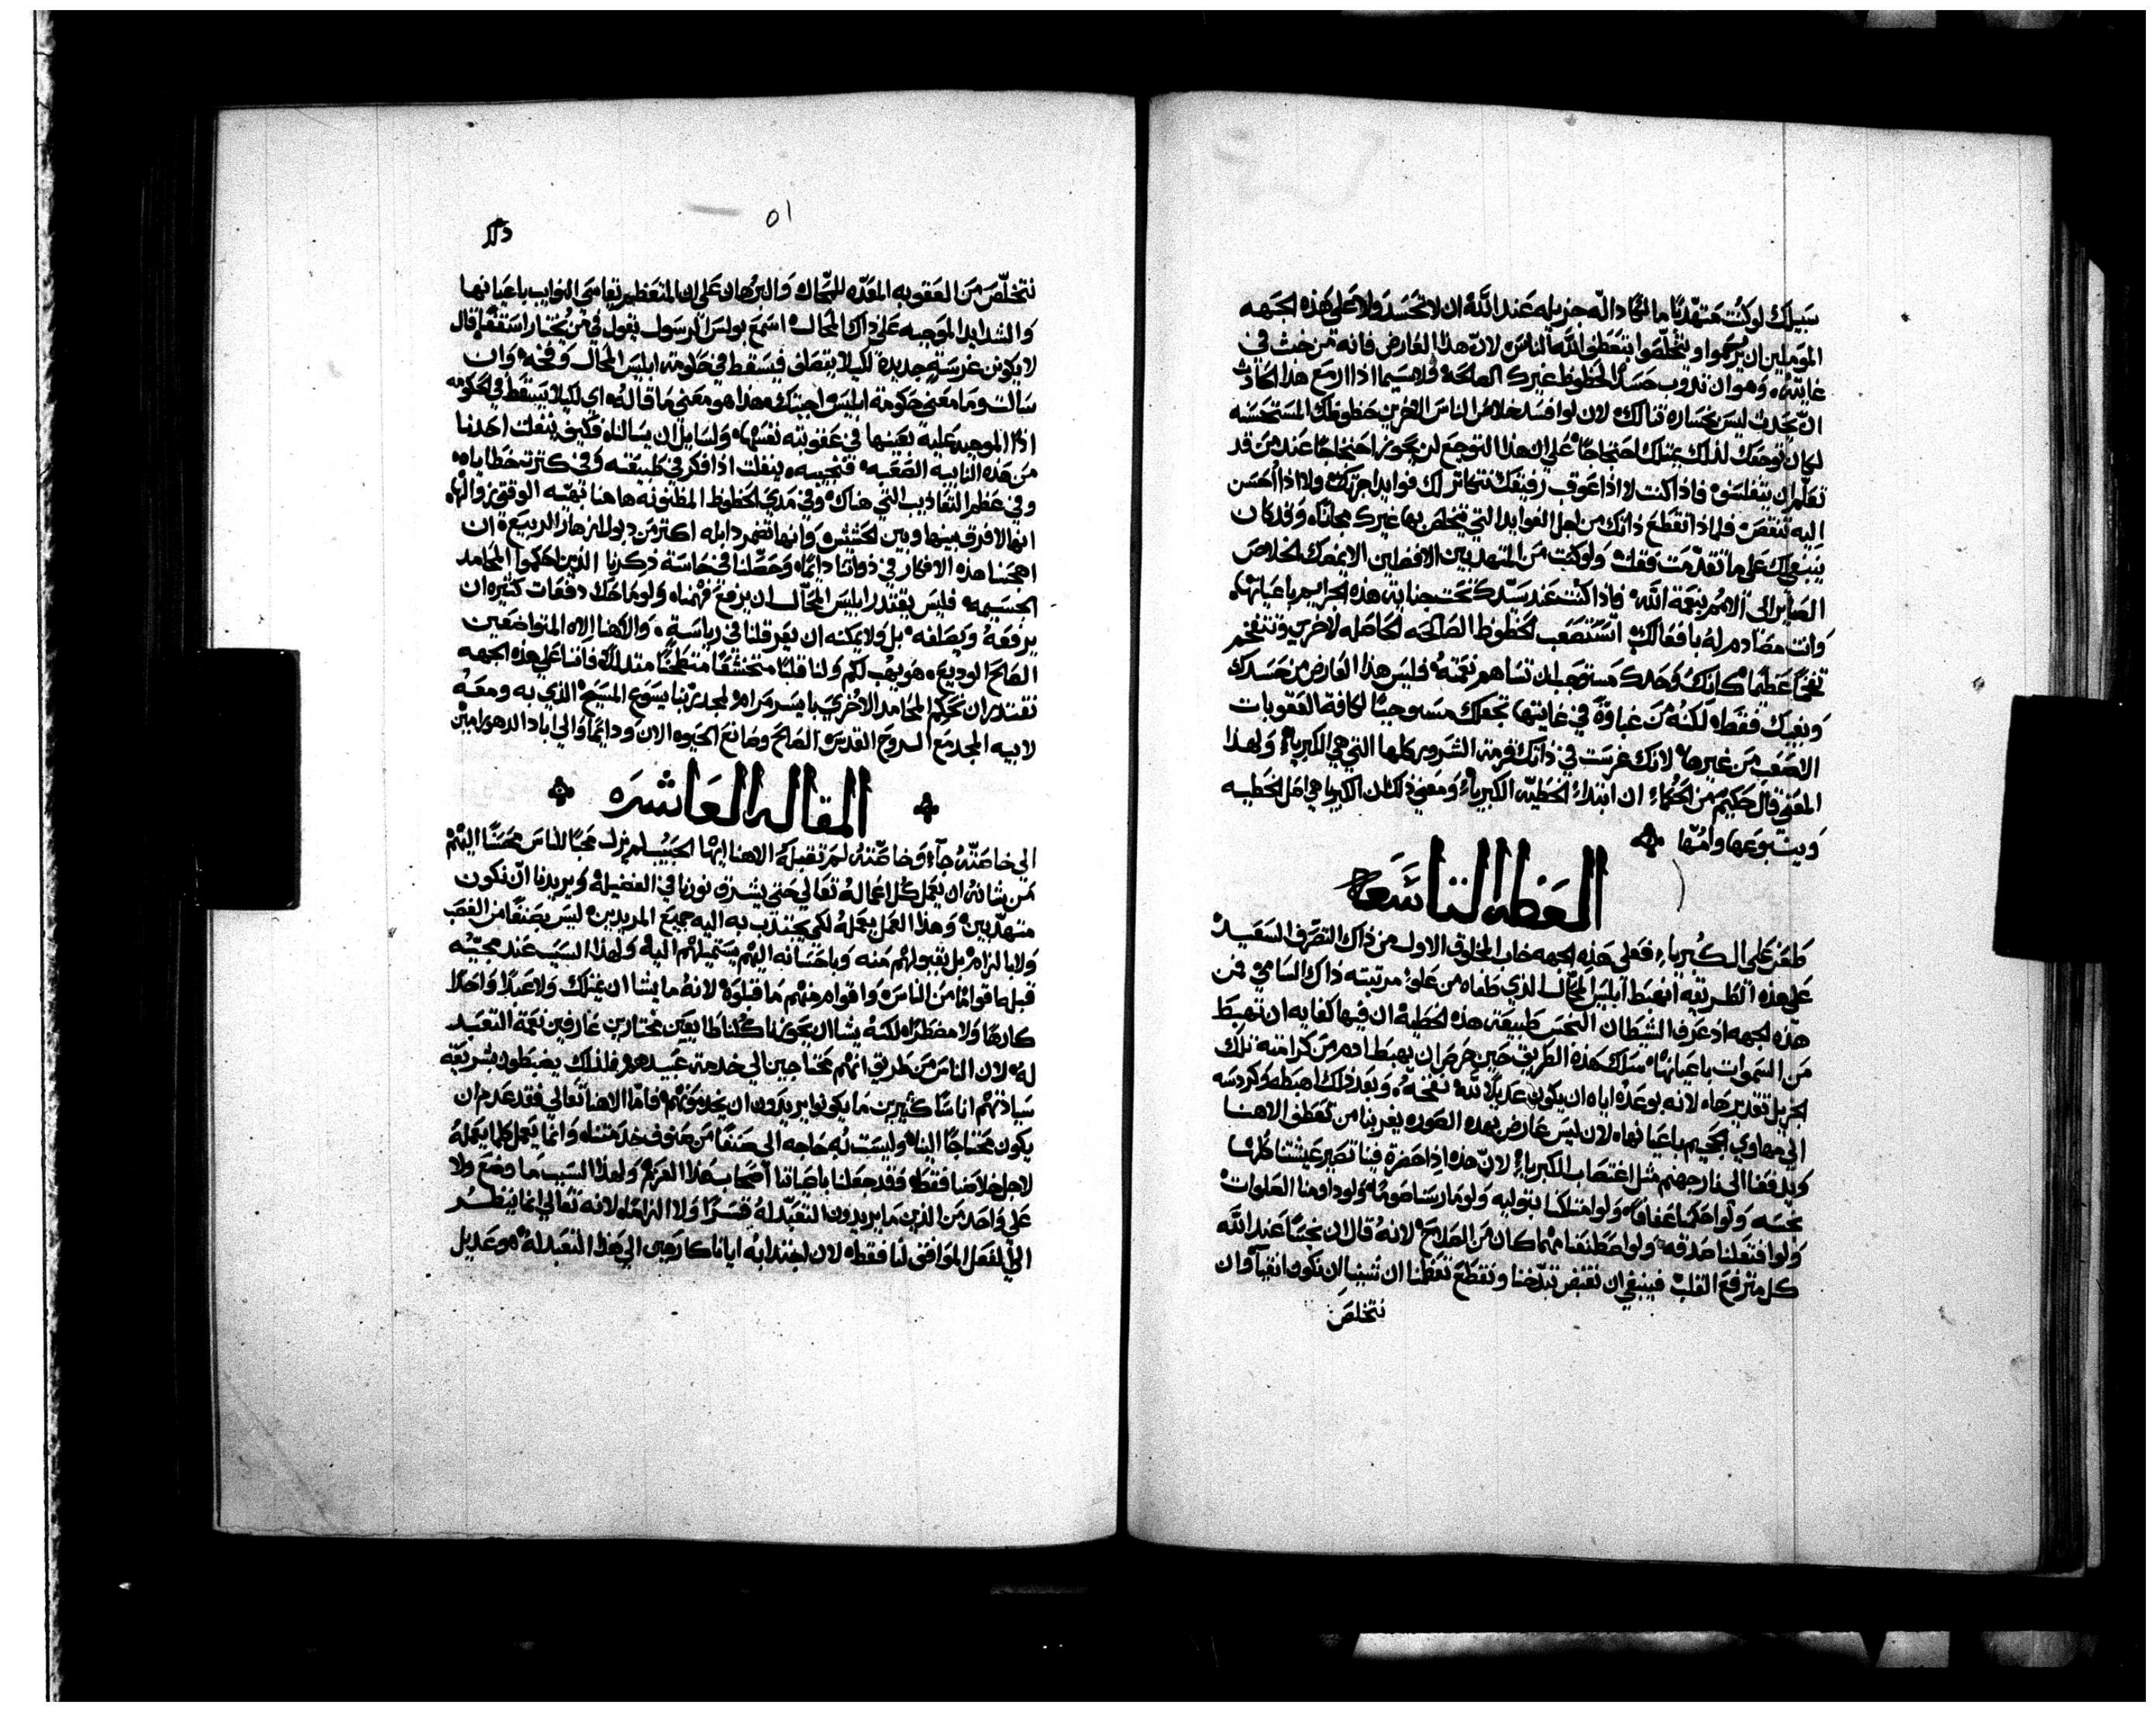 سبيلك لو كنت متهذبًا ما المكاد اله جزيله عند الله ان لا تحسد ولا على هذه الجهه
المومنين ان يرحموا ويتخلصوا بتعطف الله الناس لان هذا العارض فانه من خبث في
غايته وهو ان تذوب حسدًا لحظوظ غيرك الصالحه ولا سيما اذا ازمع هذا الحادث
ان يحدث ليس بخساره تنالك لان لو افسد خلاص الناس الاخرين حظوظك المستحسنه
لكان توجعك لذلك يمتلك احتجاجًا على ان هذا التوجع لن يحوي احتجاجًا عند من قد
تعلم ان يتفلسف فاذا كنت لا اذا عوقب رفيقك تتكاثر لك فوايد اجرتك ولا اذا احسن
اليه تنتقص فلماذا تقطع ذاتك من اجل الفوايد التي يتخلص بها غيرك مجانًا وقد كان
ينبغي لك على ما تقدمت فقلت ولو كنت من المتهذبين الافضلين الا يمضك الخلاص
الصاير الى الامم بنعمة الله فاذا كنت عند سيدك تحت جنايه هذه الجرايم باعيانها
وانت مصادم له بافعالك استصعب الحظوظ الصالحه الحاصله لاخرين وتنتفخم
تفخمًا عظيمًا كانك وحدك مستوجب ان تساهم نعمته فليس هذا العارض من حسدك
وبغيك فقط لكنه من غباوة في غايتها تجعلك مستوجبًا لكافة العقوبات
الاصعب من غيرها لانك غرست في ذاتك قرمة الشرور كلها التي هي الكبرياء ولهذا
المعنى قال حكيم من الحكماء ان ابتداء الخطيه الكبرياء ومعنى ذلك ان الكبريا هي اصل الخطيه
وينبوعها وامها
العظه التاسعه
طعن على الكبرياء فعلى هذه الجهه خاب المخلوق الاول من ذاك التصرف السعيد
على هذه الطريقه انهبط ابليس المحال الذي طغاه من علو مرتبته ذاك السامي فمن
هذه الجهه اذ عرف الشيطان النجس طبيعة هذه الخطيه ان فيها كفايه ان تهبط
من السموات باعيانها سلك هذه الطريق حين حرص ان يهبط ادم من كرامته تلك
الجزيل تقديرها لانه بوعده اياه ان يكون عديلا لله نفخه وبعد ذلك اهبطه وكردسه
الى مهاوي الجحيم باعيانها لان ليس عارض بهذه الصوره يغربنا من تعطف الاهنا
ويدفعنا الى نار جهنم مثل اغتصاب الكبرياء لان هذه اذا حضرة فينا تصير عيشتنا كلها
نجسه ولو احكمنا عفافًا ولو امتلكنا بتوليه ولو مارسنا صومًا ولو داومنا الصلوات
ولو افتعلنا صدقه ولو اصطنعنا مهما كان من الصلاح لانه قال ان نجسًا عند الله
كل مترفع القلب فينبغي ان نقبض تبدخنا ونقطع تعظمنا ان شينا ان نكون انقيا وان
نتخلص
٥١
نتخلص من العقوبه المعده للمحال والبرهان على ان المتعظم يقاسي النوايب باعيانها
والشدايد الموجبه على ذاك المحال اسمع بولس الرسول يقول في من يختار اسقفًا قال
لا يكونن غرسة جديدة لكيلا يتصلف فيسقط في حكومة ابليس المحال وفخه وان
سالت وما معنى حكومة ابليس اجبتك هذا هو معنى ما قاله اي لكيلا يسقط في الحكومه
اذًا الموجبه عليه بعينها في عقوبته نفسها ولسايل ان يسالنا وكيف ينفلت احدنا
من هذه النايبه الصعبه فنجيبه ينفلت اذا فكر في طبيعته وفي كثرت خطاياه
وفي عظم التعاذيب التي هناك وفي مدي الحظوظ المظنونه هاهنا بهيه الوقتي زوالها
انها لا فرق بينها وبين الحشيش وانها تضمر دابله اكثر من ذبول ازهار الربيع ان
اهجسنا هذه الافكار في ذواتنا دايمًا وحصلنا في حاسة ذكرنا الذين احكموا المحامد
الجسيمه فليس يقتدر ابليس المحال ان يرفع فهمنا ولو ماحك دفعات كثيره ان
يرفعه ويصلفه بل ولا يمكنه ان يعرقلنا في رياسة والاهنا الاه المتواضعين
الصالح الوديع هو يهب لكم ولنا قلبًا متخشعًا منسحقًا متذللًا فاننا على هذه الجهه
نقتدر ان نحكم المحامد الاخرى بايسر مرام لمجد ربنا يسوع المسيح الذي به ومعه
لابيه المجد مع الروح القدس الصالح وصانع الحيوه الان ودايمًا والى اباد الدهور امين
المقاله العاشره
الي خاصته جاء وخاصته لم تقبله الاهنا ايها الحبيب لم يزل محبًا للناس محسنًا اليهم
من شانه ان يعمل كل اعماله تعالي حتى يشرق نورنا في الفضيله ويريدنا ان نكون
متهذبين وهذا العمل يعمله لكي يجتذب به اليه جميع المريدين ليس بصنفًا من الغصب
ولا بالزام بل بقبولهم منه وباحسانه اليهم يستميلهم اليه ولهذا السبب عند مجيه
قبله اقوامًا من الناس واقوام منهم ما قبلوه لانه ما يشا ان يمتلك ولا عبدًا واحدًا
كارهًا ولا مضطرًا لكنه يشا ان يحوزنا كلنا طايعين مختارين عارفين نعمة التعبد
له لان الناس من طريق انهم محتاجين الي خدمة عبيدهم فلذلك يضبطون بشريعة
سيادتهم اناسًا كثيرين ما يكونوا يريدون ان يخدموهم فاما الاهنا تعالي فقد عدم ان
يكون محتاجًا الينا وليست له حاجه الى صنفًا من صنوف خدمتنا وانما يعمل كلما يعمله
لاجل خلاصنا فقط وقد جعلنا باصياتنا اصحاب هذا العزم ولهذا السبب ما وضع ولا
على واحد من الذين ما يريدون التعبد له قسرًا ولا الزامًا لانه تعالي انما ينظر
الي الفعل الموافق لنا فقط لان اجتذابه ايانا كارهين الي هذا التعبد له هو عديل